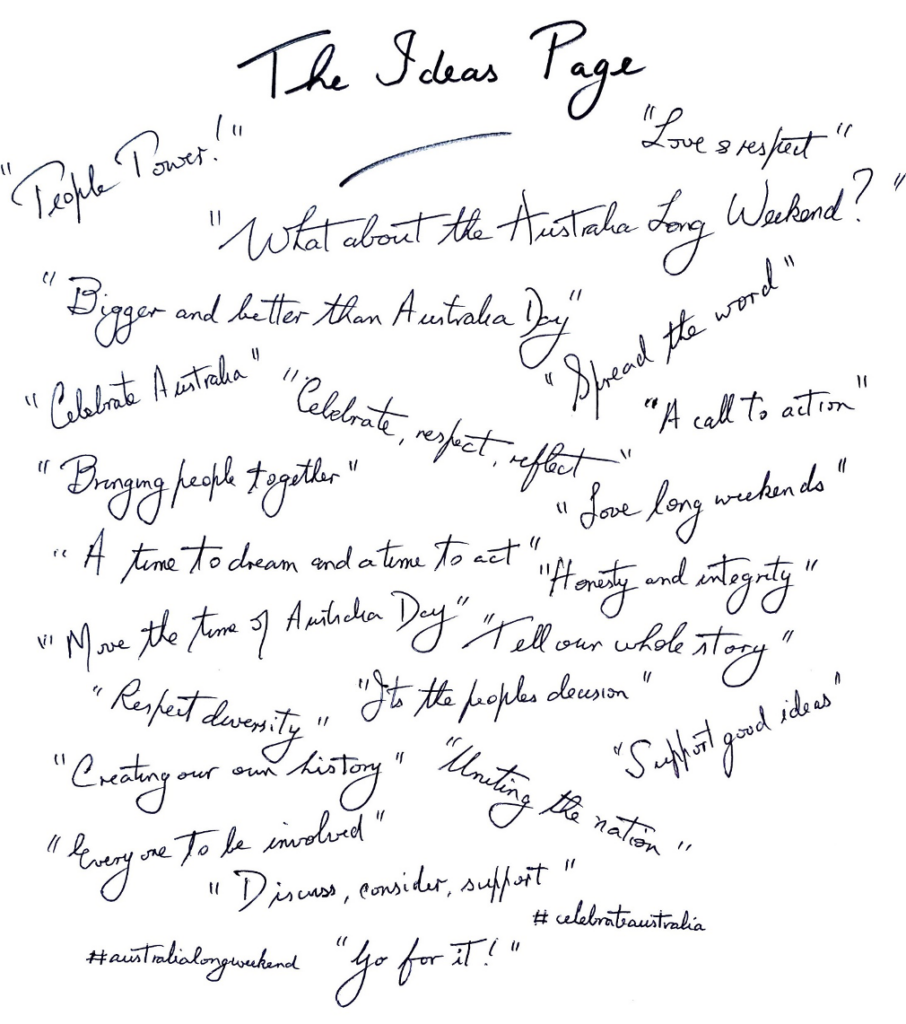 The Ideas Page
"People Power!"
"Love & respect"
"What about the Australia Long Weekend?"
"Bigger and better than Australia Day"
"Spread the word"
"Celebrate Australia"
"Celebrate, respect, reflect"
"A call to action"
"Bringing people together"
"Love long weekends"
"A time to dream and a time to act"
"Honesty and integrity"
"Move the time of Australia Day"
"Tell our whole story"
"Respect diversity"
"Its the peoples decision"
"Support good ideas"
"Creating our own history"
"Uniting the nation"
"Everyone to be involved"
"Discuss, consider, support"
#celebrateaustralia
#australialongweekend
"Go for it!"